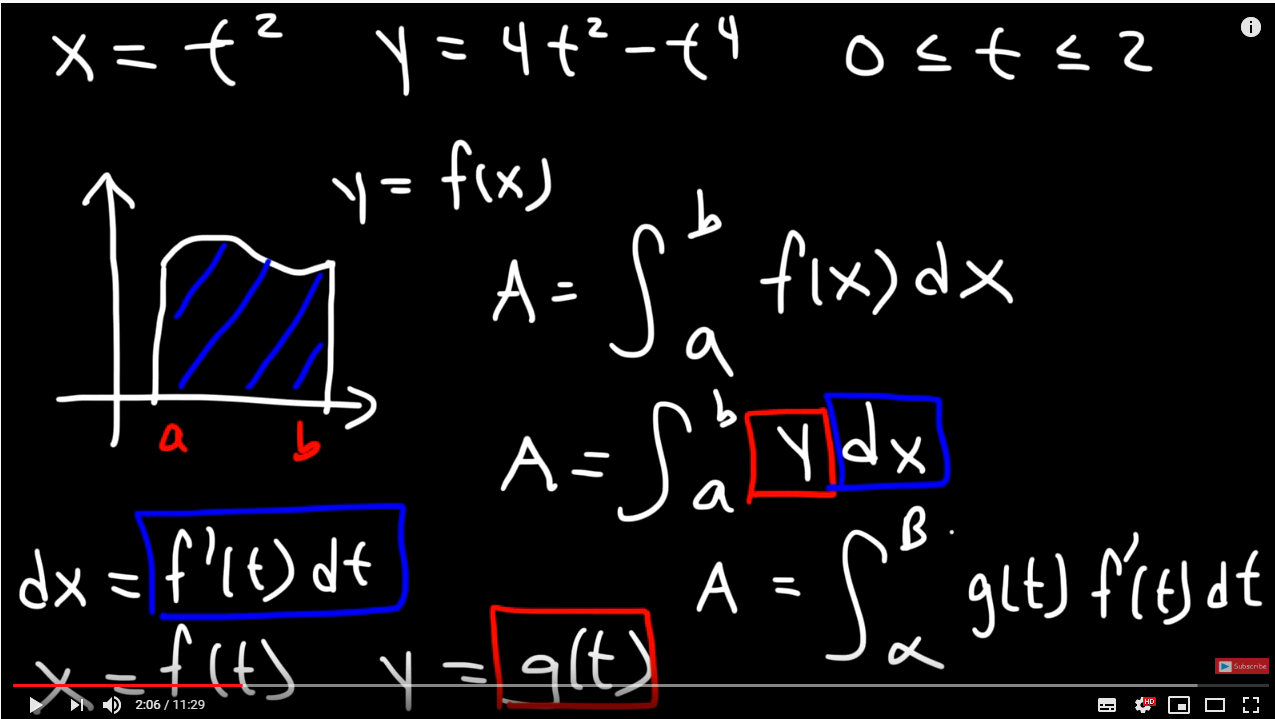 x = t² y = 4t² - t⁴ 0 ≤ t ≤ 2
y = f(x)
A = ∫ₐᵇ f(x) dx
a b
A = ∫ₐᵇ y dx
dx = f'(t) dt
A = ∫_α^β g(t) f'(t) dt
x = f(t) y = g(t)
Subscribe
2:06 / 11:29
HD
i